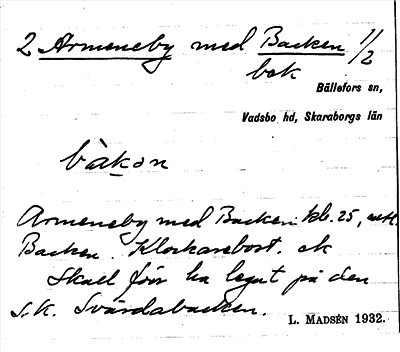 2 Armeneby med Backen 1/2
bok
Bällefors sn,
Vadsbo hd, Skaraborgs län
bàkon
Armeneby med Backen kb. 25,
Backen. Klockarebost. ek
Skall förr ha legat på den
s.k. Svärdabacken.
L. MADSÉN 1932.